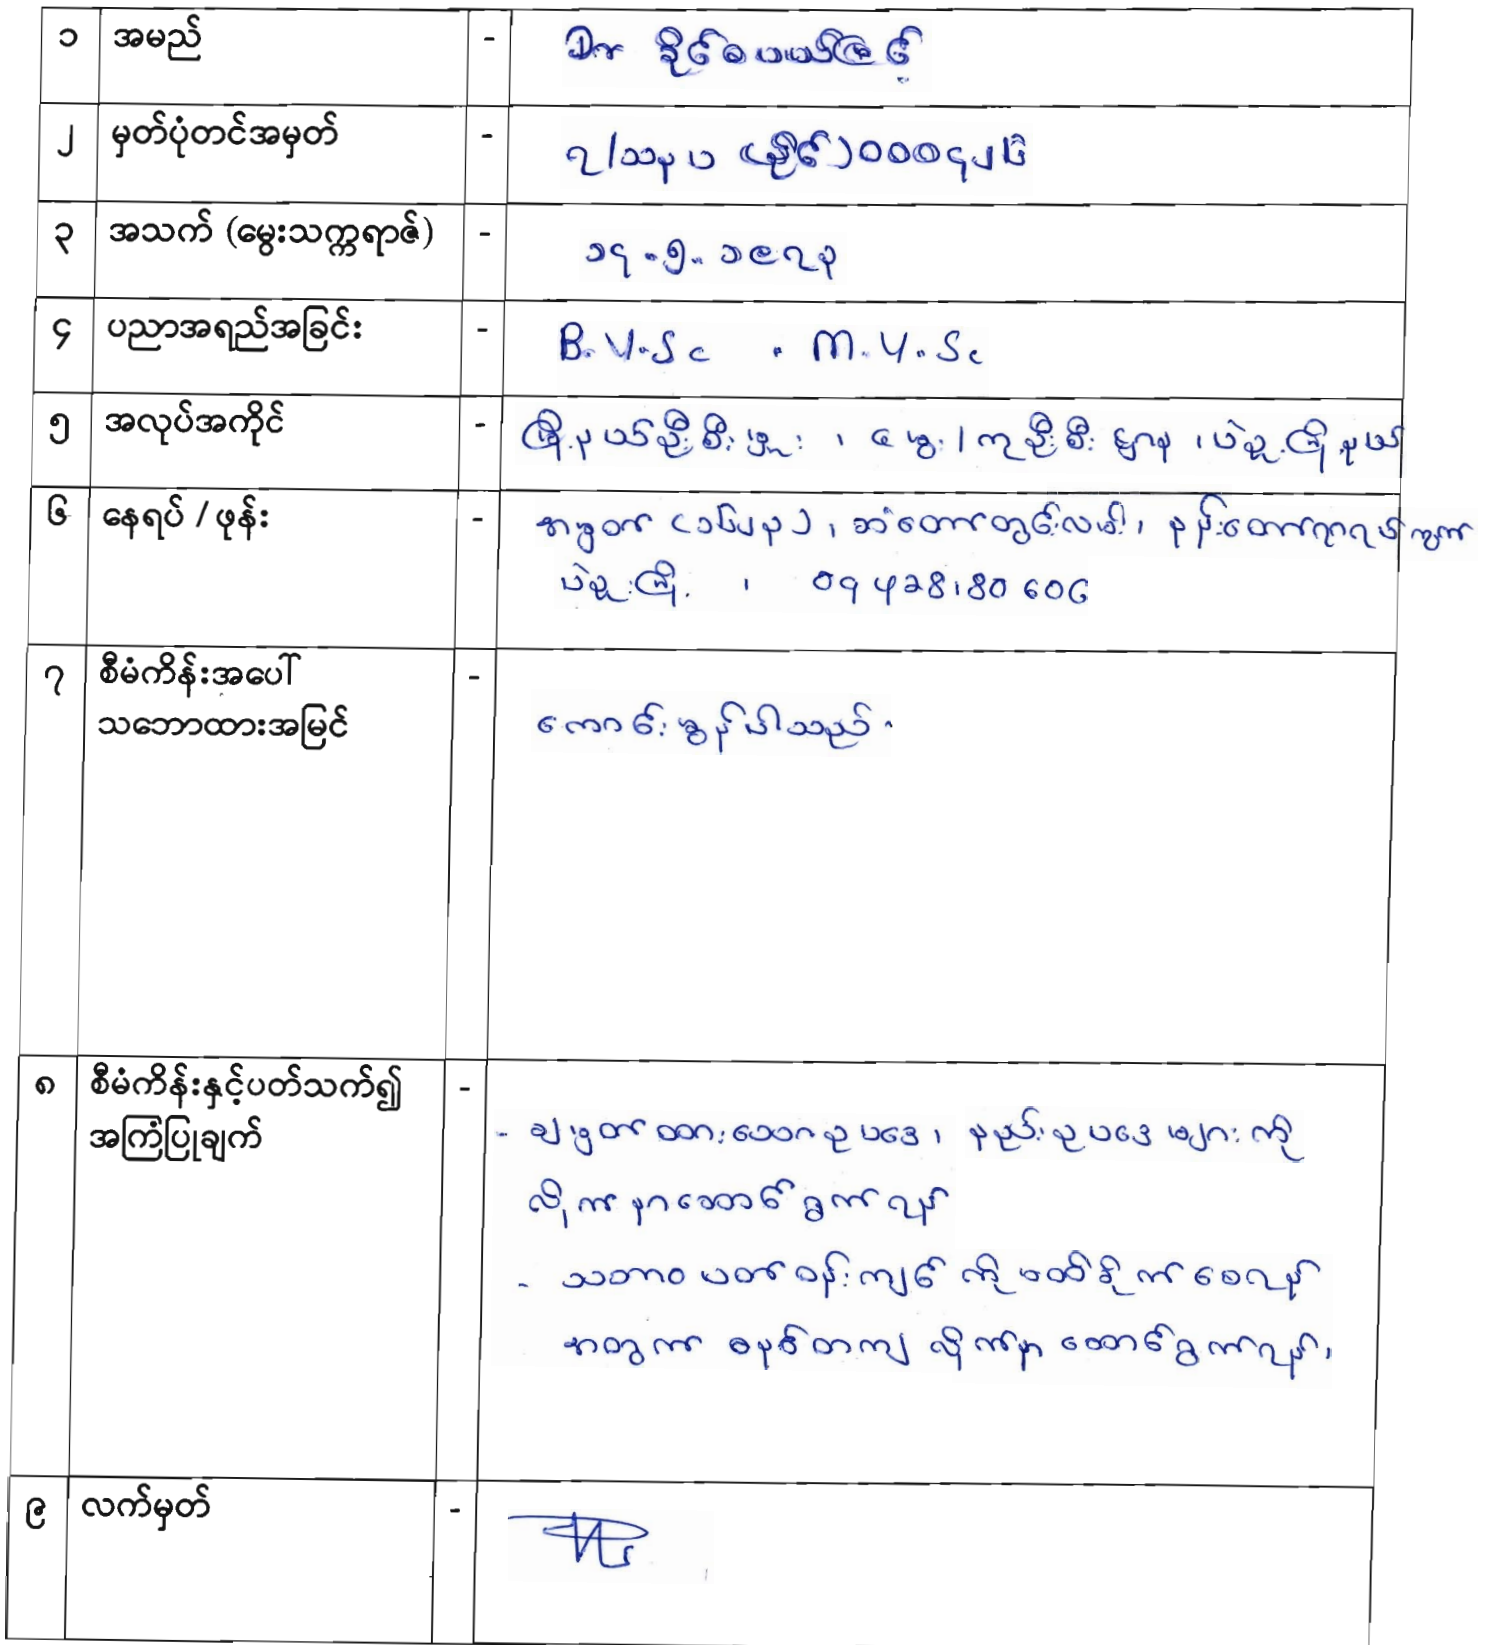 ၁ အမည် - ဒေါ်ခိုင်စပယ်မြင့်
၂ မှတ်ပုံတင်အမှတ် - ၇/သနပ (နိုင်) ၀၀၀၄၂၆
၃ အသက် (မွေးသက္ကရာဇ်) - ၁၄.၅.၁၉၇၃
၄ ပညာအရည်အခြင်း - B.V.Sc . M.V.Sc
၅ အလုပ်အကိုင် - မြို့နယ်ဦးစီးမှူး၊ မွေး/ကုဦးစီးဌာန၊ ပဲခူးမြို့နယ်
၆ နေရပ် / ဖုန်း - အမှတ် (၁၆၂၃)၊ ဘဲတောတွင်းလမ်း၊ နန်းတော်ရာရပ်ကွက်
ပဲခူးမြို့၊ 09
၇ စီမံကိန်းအပေါ် -
သဘောထားအမြင် ကောင်းမွန်ပါသည်။
၈ စီမံကိန်းနှင့်ပတ်သက်၍ -
အကြံပြုချက် - ချမှတ်ထားသောဥပဒေ၊ နည်းဥပဒေများကို
လိုက်နာဆောင်ရွက်ရန်
- သဘာဝပတ်ဝန်းကျင်ကို မထိခိုက်စေရန်
အတွက် စနစ်တကျ လိုက်နာဆောင်ရွက်ရန်၊
၉ လက်မှတ် -